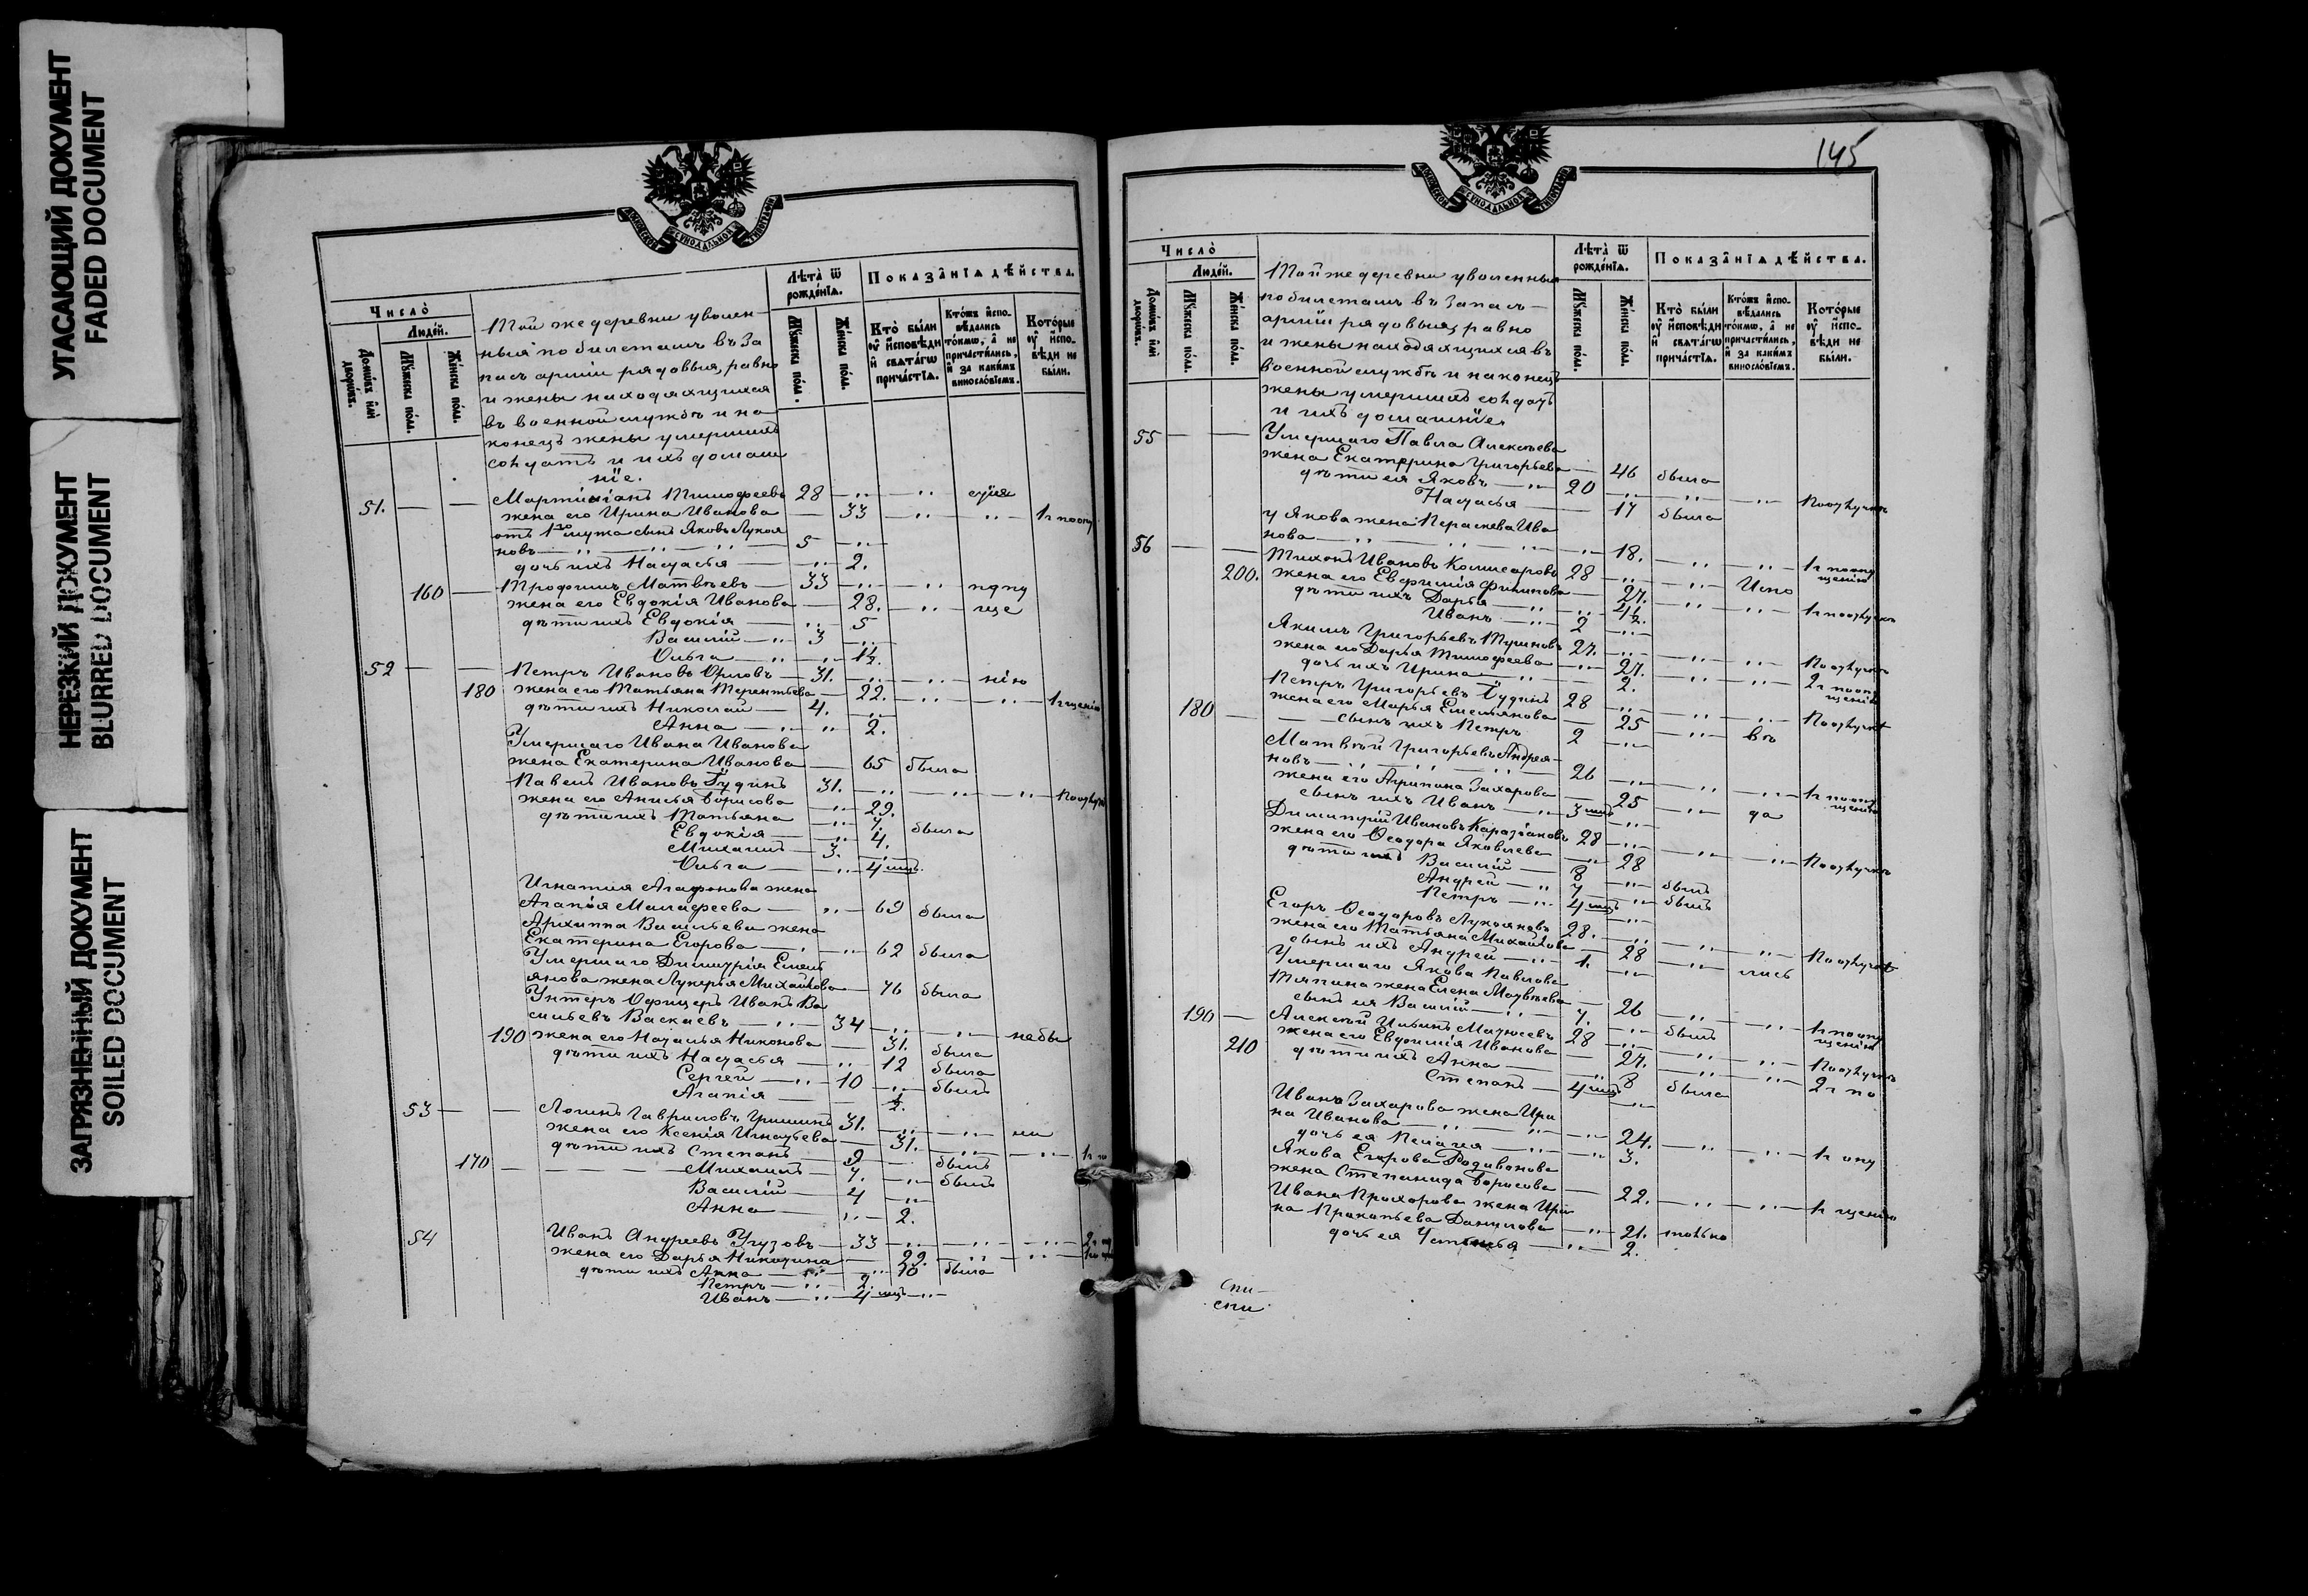 УГАСАЮЩИЙ ДОКУМЕНТ
FADED DOCUMENT
НЕРЕЗКИЙ ДОКУМЕНТ
BLURRED DOCUMENT
ЗАГРЯЗНЕННЫЙ ДОКУМЕНТ
SOILED DOCUMENT
МОСКОВСКОЙ СѴНОДАЛЬНОЙ ТИПОГРАФІИ
Число̀
Людей.
Домѡвъ илѝ дворѡвъ.
Мꙋжеска пола.
Женска пола.
Лѣта̀ ѿ рожденїѧ.
Мꙋжеска пола.
Женска пола.
Показанїѧ дѣйства.
Кто̀ были оу҆ исповѣди и҆ свѧтагѡ причастїѧ.
Ктожъ исповѣдались токмѡ, а҆ не причастились, и҆ за какимъ винословїемъ.
Которые оу҆ исповѣди не были.
Той же деревни уволен-
ныя по билетамъ въ за
пасъ арміи рядовыя, равно
и жены находящихся
въ военной службѣ и на
конецъ жены умершихъ
солдатъ и ихъ домаш
ніе.
51. Мартиніанъ Тимофеевъ 28
жена его Ирина Иванова 33
отъ 1го мужа сынъ Яковъ Лукоя
новъ 5
дочь ихъ Настасья 2.
160 Трофимъ Матвѣевъ 33
жена его Евдокія Иванова 28.
дѣти ихъ Евдокія 5
Василій 3
Ольга 1½.
52 Петръ Ивановъ Орловъ 31. нію
180 жена его Татьяна Терентьева 22.
дѣти ихъ Николай 4.
Анна 2.
Умершаго Ивана Иванова
жена Екатерина Иванова 65 была
Павелъ Ивановъ Гудинъ 31.
жена его Анисья Борисова 29.
дѣти ихъ Татьяна 7. была
Евдокія 4.
Михаилъ 3.
Ольга 4 мцъ.
Игнатия Агафонова жена
Агапія Малафеева 69 была
Архиппа Васильева жена
Екатерина Егорова 62 была
Умершаго Димитрія Емель
янова жена Лукерья Михайлова 76 была
Унтеръ Офицеръ Иванъ Ва
сильевъ Васкаевъ 34 небы
190 жена его Наталья Никонова 31. была
дѣти ихъ Настасья 12 была
Сергѣй 10 былъ
Агапія ½.
53 Логинъ Гавриловъ Гришинъ 31. ли
жена его Ксенія Игнатьева 31.
дѣти ихъ Степанъ 9 былъ
170 Михаилъ 7. былъ
Василій 4
Анна 2.
54 Иванъ Андреевъ Угузовъ 33
жена его Дарья Никитина 29.
дѣти ихъ Анна 10 была
Петръ 2.
Иванъ 4 мцъ
145
МОСКОВСКОЙ СѴНОДАЛЬНОЙ ТИПОГРАФІИ
Число̀
Людей.
Домѡвъ илѝ дворѡвъ.
Мꙋжеска пола.
Женска пола.
Лѣта̀ ѿ рожденїѧ.
Мꙋжеска пола.
Женска пола.
Показанїѧ дѣйства.
Кто̀ были оу҆ исповѣди и҆ свѧтагѡ причастїѧ.
Ктожъ исповѣдались токмѡ, а҆ не причастились, и҆ за какимъ винословїемъ.
Которые оу҆ исповѣди не были.
Той же деревни уволенныя
по билетамъ въ запасъ
арміи рядовыя, равно
и жены находящихся въ
военной службѣ и наконецъ
жены умершихъ солдатъ
и ихъ домашніе.
55 Умершаго Павла Алексѣева
жена Екатерина Григорьева 46 была
дѣти ея Яковъ 20 По отлучкѣ
Настасья 17 была
у Якова жена Параскева Ива
нова 18. по опущенію
56 Тихонъ Ивановъ Комисаровъ 28 Испо
200. жена его Евфимія Филипова 27.
дѣти ихъ Дарья 4½.
Иванъ 2
Якимъ Григорьевъ Туриновъ 27. По отлучкѣ
жена его Дарья Тимофеева 27. по опущенію
дочь ихъ Ирина 2.
Петръ Григорьевъ Гудинъ 28 По отлучкѣ
180 жена его Марья Емельянова 25 вѣ
сынъ ихъ Петръ 2
Матвѣй Григорьевъ Андрея-
новъ 26 по опущенію
жена его Агрипина Захарова 25 да
сынъ ихъ Иванъ 3 мцъ
Димитрій Ивановъ Каразіановъ 28 По отлучкѣ
жена его Ѳеодора Яковлева 28
дѣти ихъ Василій 8 былъ
Андрей 7 былъ
Петръ 4 мцъ
Егоръ Ѳеодоровъ Лукояновъ 28. По отлучкѣ
жена его Татьяна Михайлова 28 лись
сынъ ихъ Андрей 1.
Умершаго Якова Павлова
Тяпина жена Елена Матвѣева 26 по опущенію
сынъ ея Василій 7. былъ
190 Алексѣй Ильинъ Матюсевъ 28 По отлучкѣ
210 жена его Евдокія Иванова 27. 2г по
дѣти ихъ Анна 8 была
Степанъ 4 мцъ
Ивана Захарова жена Ири
на Иванова 24. опу
дочь ея Пелагея 3.
Якова Егорова Родивонова
жена Степанида Борисова 22. щенію
Ивана Прохорова жена Ири
на Прокопьева Данилова 21. только
дочь ея Устинья 2.
спи-
спи